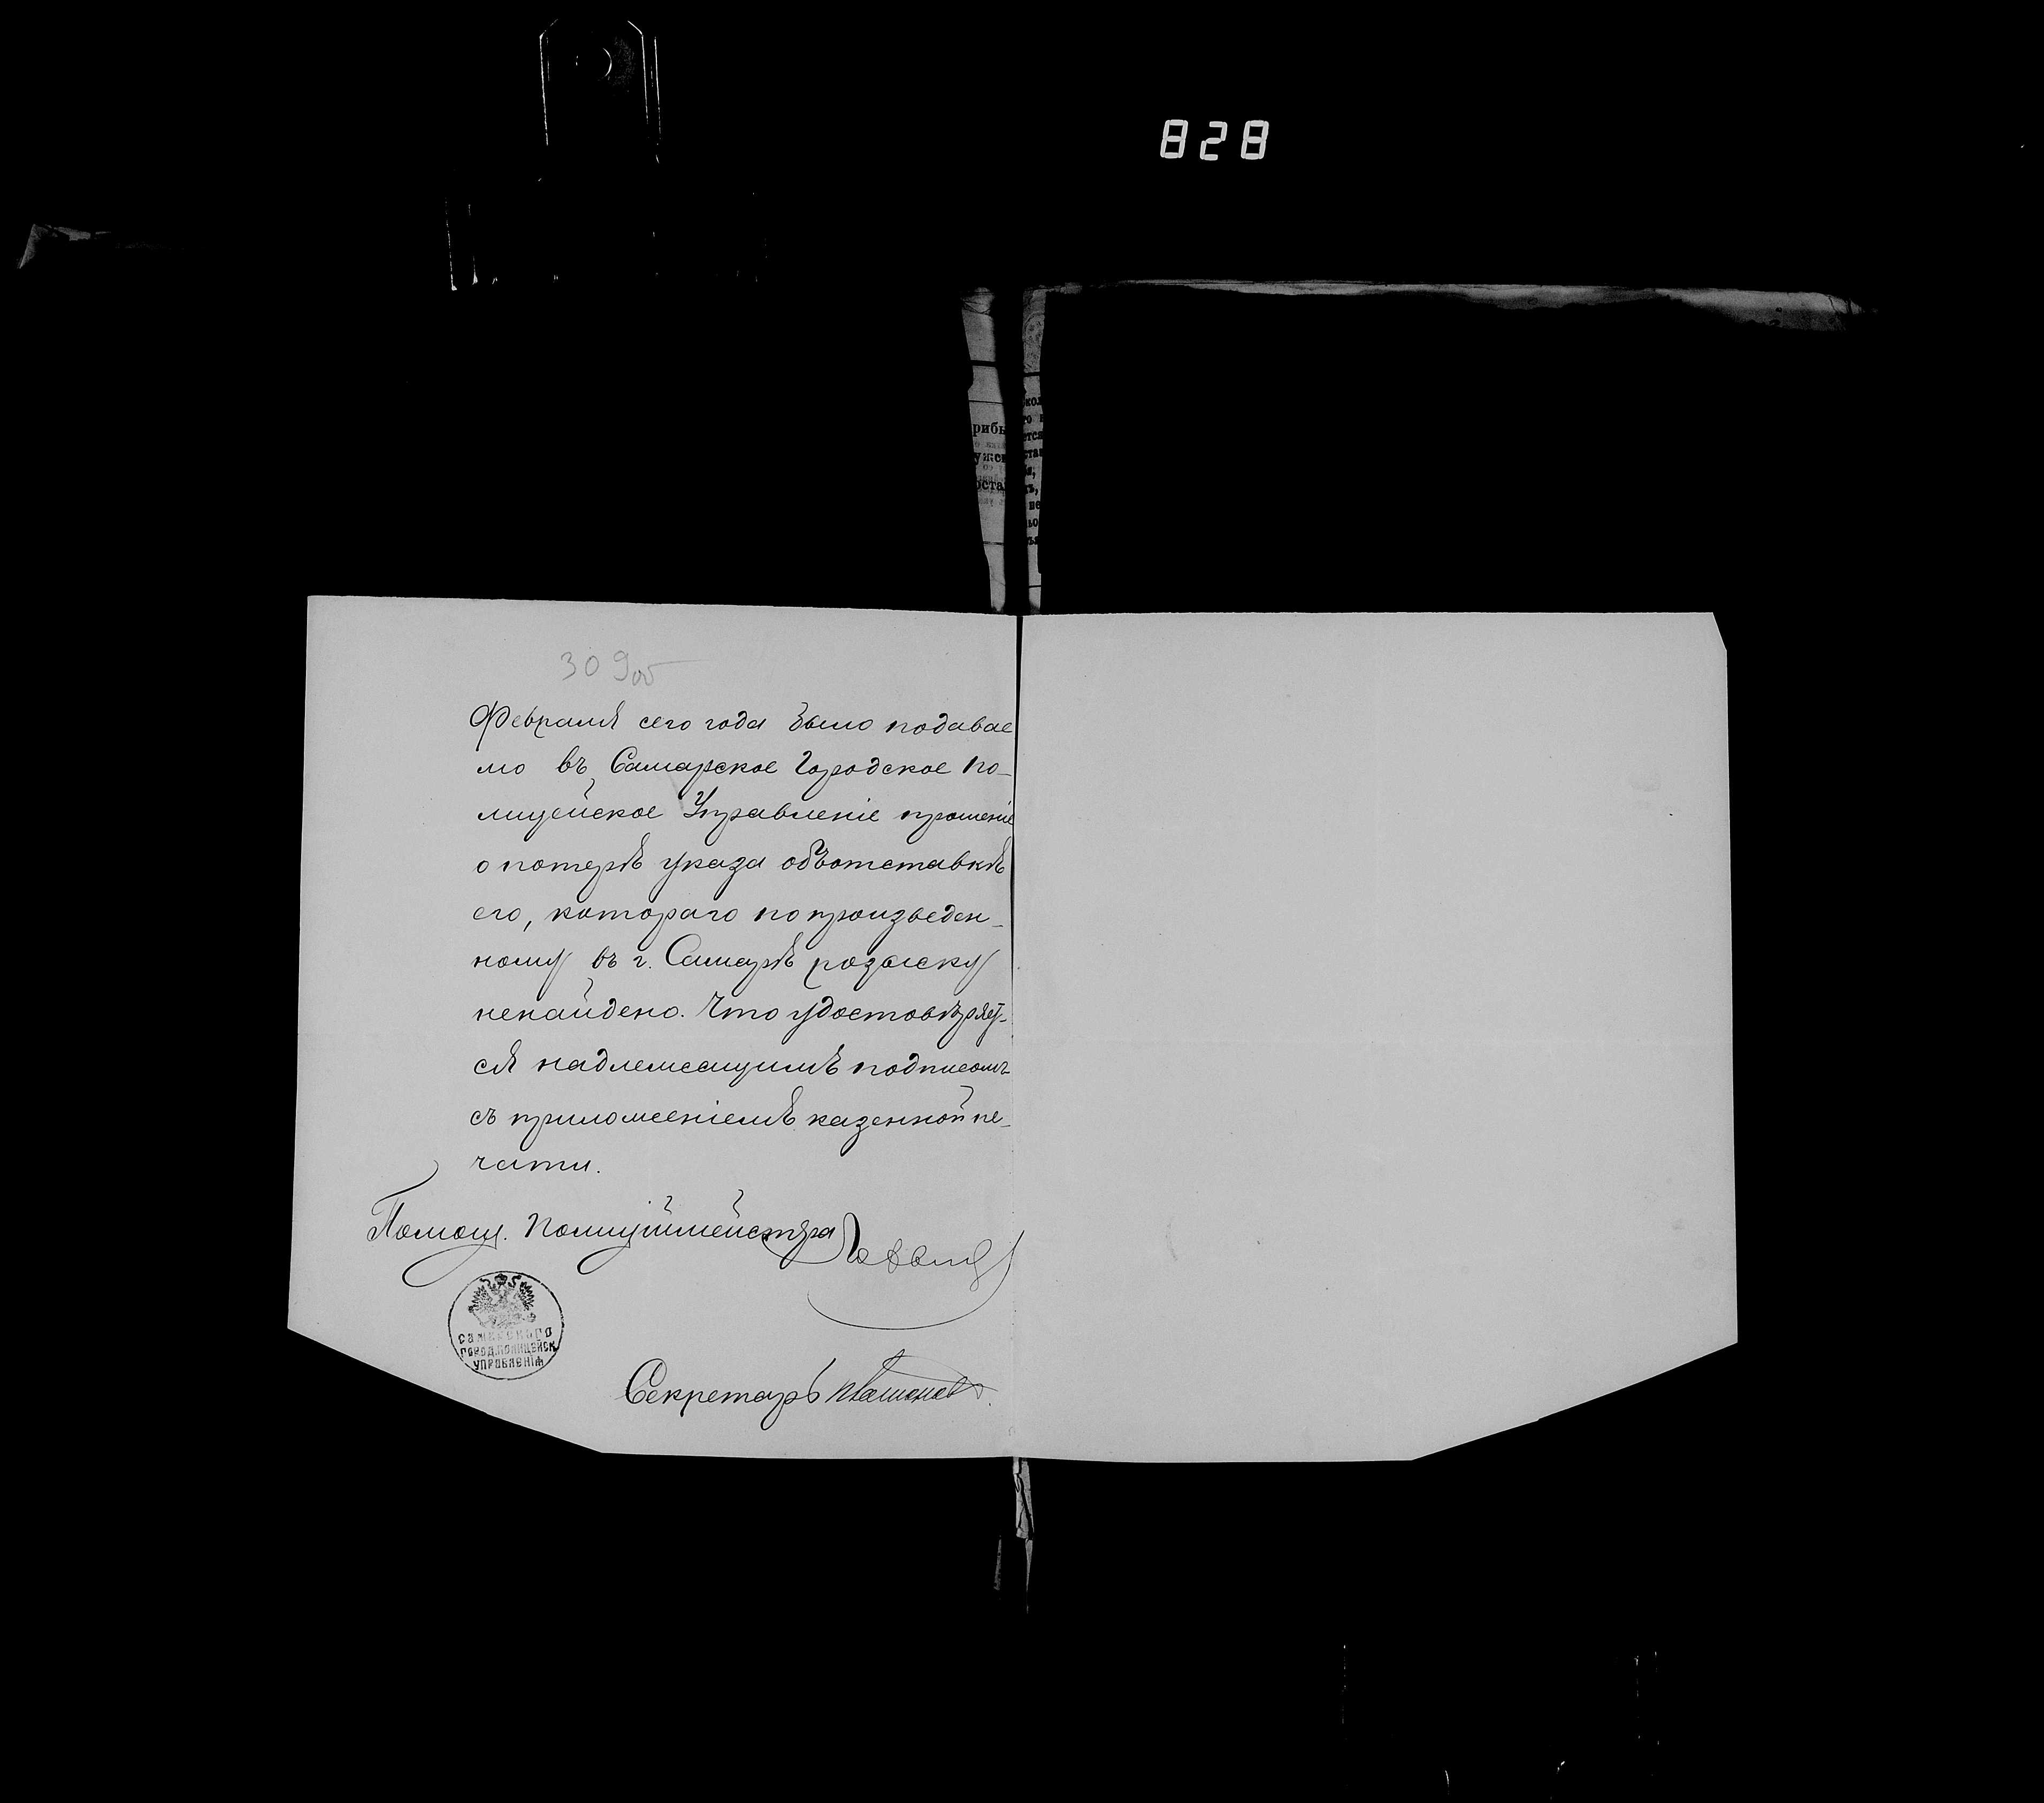 828
рибы
ужск
оста
309об
Февраля сего года было подавае
мо въ Самарское Городское По-
лицейское Управленіе прошеніе
о потерѣ указа объотставкѣ
его, котораго по произведен-
ному въ г. Самарѣ розыску
ненайдено. Что удостовѣряет-
ся надлежащимъ подписомъ
съ приложеніемъ казенной пе-
чати.
Помощ. Полиціймейстра
САМАРСКАГО
ГОРОД. ПОЛИЦЕЙСК.
УПРАВЛЕНІЯ
Секретарь